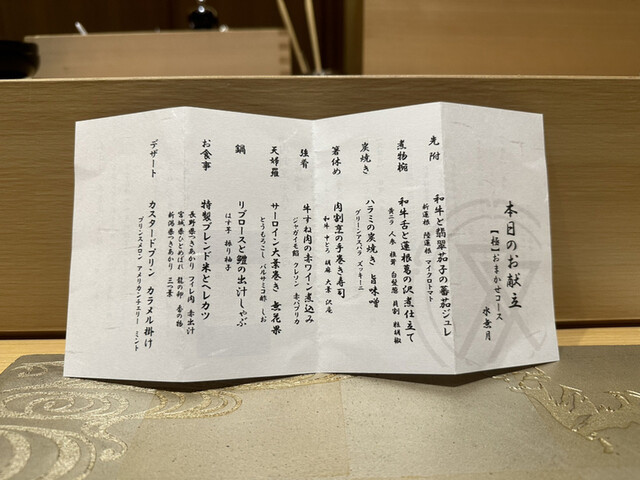 本日のお献立
【極】おまかせコース
水無月
先附
和牛と翡翠茄子の蕃茄ジュレ
新蓮根 陸蓮根 マイクロトマト
煮物椀
和牛舌と蓮根葛の沢煮仕立て
黄ニラ 人参 椎茸 白髪葱 貝割 粒胡椒
炭焼き
ハラミの炭焼き 旨味噌
グリーンアスパラ ズッキーニ
箸休め
肉割烹の手巻き寿司
和牛 すじろ 胡麻 大葉 沢庵
強肴
牛すね肉の赤ワイン煮込み
ジャガイモ餡 クレソン 赤パプリカ
天婦羅
サーロイン大葉巻き 無花果
とうもろこし バルサミコ酢 しお
鍋
リブロースと鰹の出汁しゃぶ
はす芋 振り柚子
お食事
特製ブレンド米とヘレカツ
長野県つきあかり フィレ肉 赤出汁
宮城県ひとめぼれ 龍の卵 香の物
新潟県つきあかり 三つ葉
デザート
カスタードプリン カラメル掛け
プリンスメロン アメリカンチェリー ミント